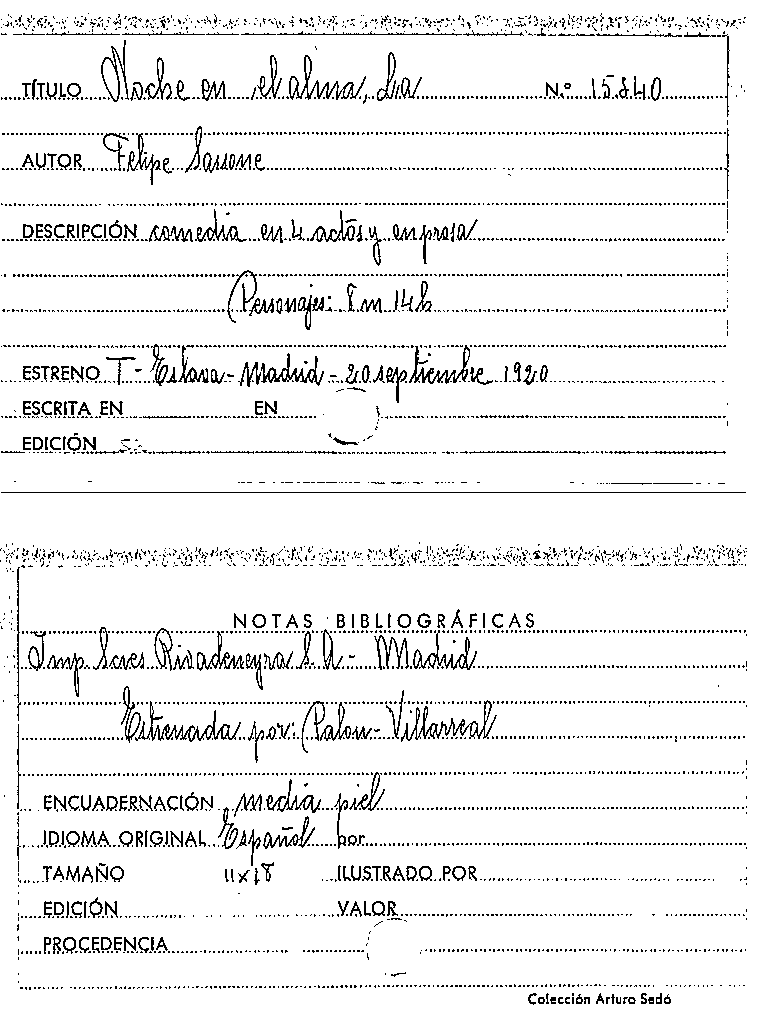 TÍTULO Noche en el alma, La N.º 15.840
AUTOR Felipe Sassone
DESCRIPCIÓN comedia en 4 actos y en prosa
Personajes: 8 m 14 h
ESTRENO T - Eslava - Madrid - 20 septiembre 1920
ESCRITA EN EN
EDICIÓN
NOTAS BIBLIOGRÁFICAS
Imp Sces Rivadeneyra S.A - Madrid
Estrenada por: Palou - Villarreal
ENCUADERNACIÓN media piel
IDIOMA ORIGINAL Español por
TAMAÑO 11x18 ILUSTRADO POR
EDICIÓN VALOR
PROCEDENCIA
Colección Arturo Sedó